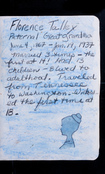 Florence Tulley
Paternal Great Grandmother
June 9, 1867 - Jan. 17, 1937
Married 3 times - the
first at 14! Had 13
children - 8 lived to
adulthood. Traveled
from Tennessee
to Washington.
at the time at
18.